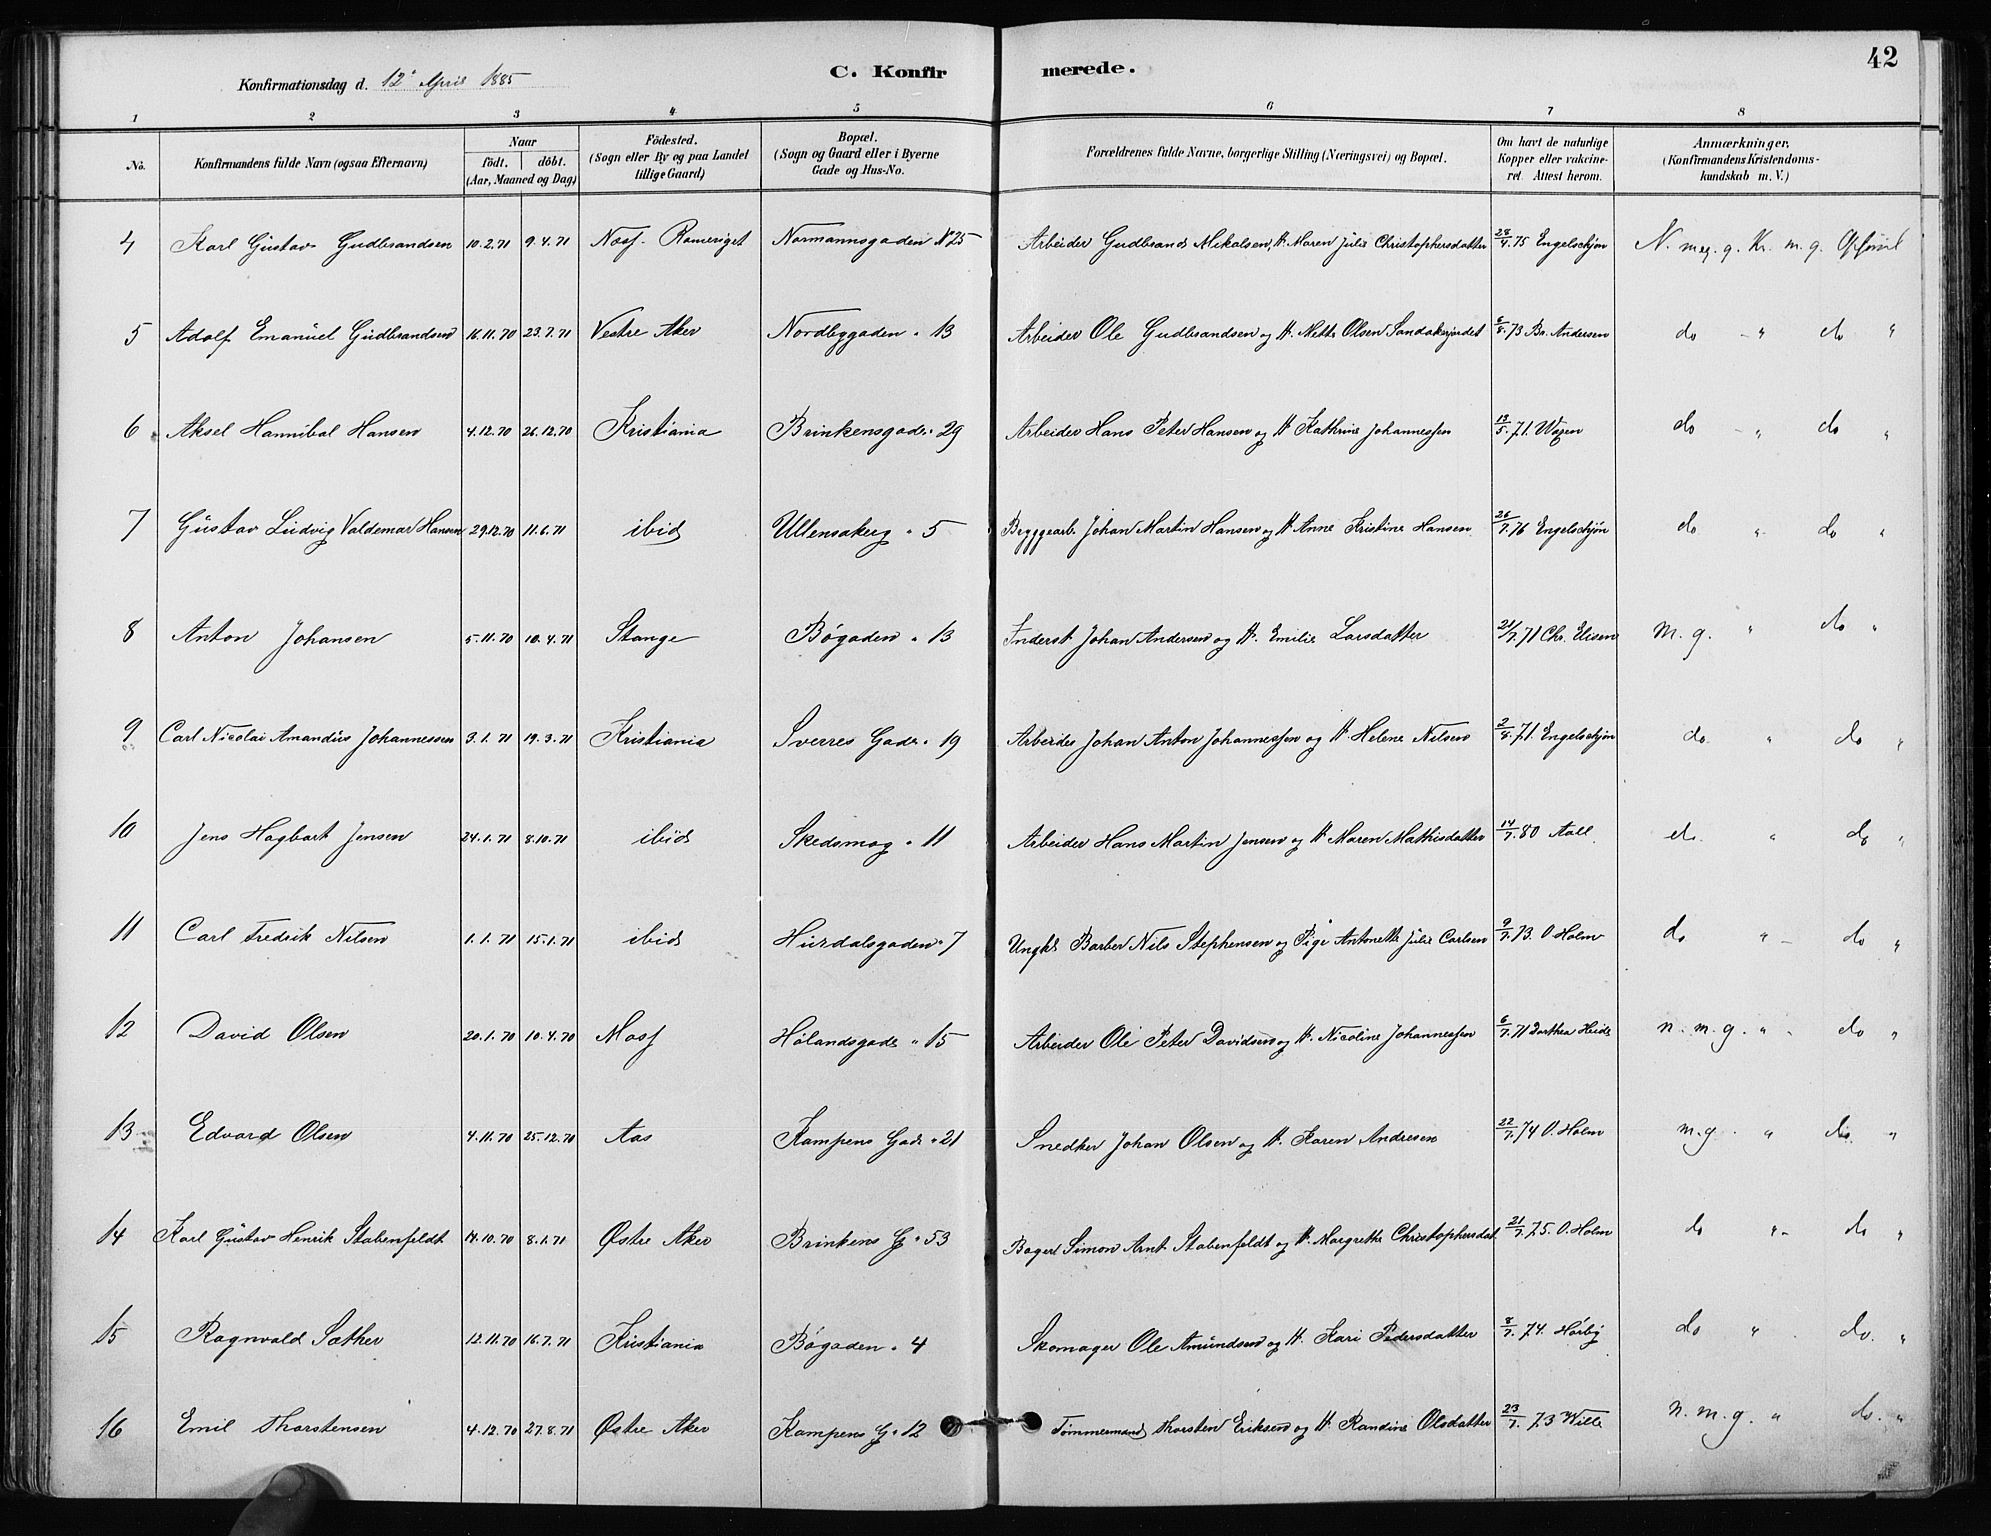 42
Konfirmationsdag d. 12te April 1885 C. Konfirmerede.
1 2 3 4 5 6 7 8
No. Konfirmandens fulde Navn (ogsaa Efternavn) Naar födt. döbt. (Aar, Maaned og Dag) Födested. (Sogn eller By og paa Landet tillige Gaard) Bopæl. (Sogn og Gaard eller i Byerne Gade og Hus-No. Forældrenes fulde Navne, borgerlige Stilling (Næringsvei) og Bopæl. Om havt de naturlige Kopper eller vakcineret. Attest herom. Anmærkninger. (Konfirmandens Kristendomskundskab m. V.)
4 Karl Gustav Gudbrandsen 10.2.71 9.4.71 Næss. Romeriget Normannsgaden N 25 Arbeider Gudbrand Mikalsen, H. Maren Julie Christophersdatter 28/4.75 Engelschjøn N. meg. g. Kr. m. g. Opførsel
5 Adolf Emanuel Gudbrandsen 16.11.70 23.7.71 Vestre Aker Nordbygaden " 13 Arbeider Ole Gudbrandsen og H. Mette Olsen Sandakerjordet 6/8.73 Br. Andersen do - " do "
6 Aksel Hannibal Hansen 4.12.70 26.12.70 Kristiania Brinkensgade " 29 Arbeider Hans Peter Hansen og H. Kathrine Johannessen 13/5.71. do - " do "
7 Gustav Ludvig Valdemar Hansen 29.12.70 11.6.71 ibid Ullensakerg " 5 Byggearb. Johan Martin Hansen og H. Anne Kristine Hansen 26/7.76 Engelschjøn do " do "
8 Anton Johansen 5.11.70 10.4.71 Stange Bøgaden " 13 Inderst Johan Andersen og H. Emilie Larsdatter 21/7.71 Chr. m. g. " do "
9 Carl Nicolai Amandus Johannessen 3.1.71 19.3.71 Kristiania Sverres Gade " 19 Arbeider Johan Anton Johannessen og H. Helene Nilsen 2/8.71. Engelschjøn do. " do "
10 Jens Hagbart Jensen 24.1.71 8.10.71 ibid Skedsmog " 11 Arbeider Hans Martin Jensen og H. Maren Mathisdatter 14/7.80 Aall do. " do "
11 Carl Fredrik Nilsen 1.1.71 15.1.71 ibid Hurdalsgaden " 7 Ungk. Barber Nils Stephensen og Pige Antonette Julie Carlsen 9/7.73. O. Holm do " - do "
12 David Olsen 20.1.70 10.4.70 Moss Hølandsgade " 15 Arbeider Ole Peter Davidsen og H. Nicoline Johannessen 6/7.71 Dorthea Heide n. m. g. " - do "
13 Edvard Olsen 4.11.70 25.12.70 Aas Kampens Gade " 21 Snedker Johan Olsen og H. Karen Andresen 22/7.74 O. Holm m. g. " do. "
14 Karl Gustav Henrik Stabenfeldt 14.10.70 8.1.71 Østre Aker Brinkens G " 53 Bager Simon Arnt Stabenfeldt og H. Margrethe Christophersdat 21/7.75. O. Holm do " - do "
15 Ragnvald Sæther 12.11.70 16.7.71 Kristiania Bøgaden " 4 Skomager Ole Amundsen og H. Kari Pedersdatter 8/7.74. Hørbÿ do " - do. "
16 Emil Thorstensen 4.12.70 27.8.71 Østre Aker Kampens G " 12 Tømmermand Thorsten Eriksen og H. Randine Olsdatter 23/7.73 Wille n. m. g. " do. "